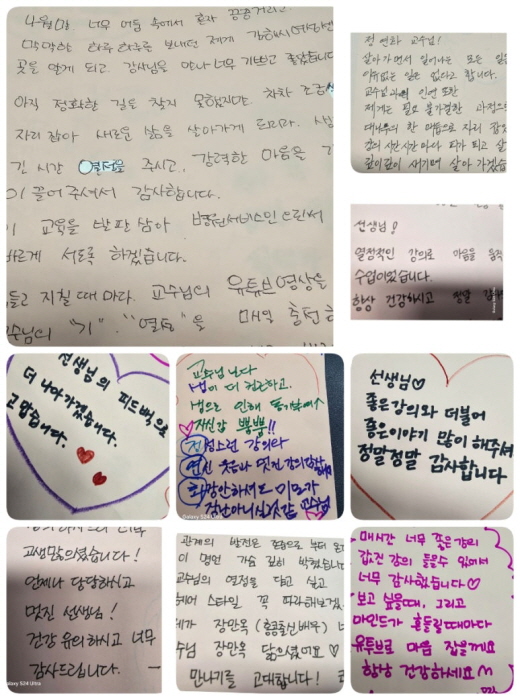 너무 어둠 속에서 혼자 끙끙거리고
막막한 하루하루를 보내던 제게
꽃을 알게 되고 강사님을 만나 너무 기쁘고 좋았습니다
아직 정확한 길을 찾지 못했지만, 차차 조금씩
자리 잡아 새로운 삶을 살아가게 되리라
긴 시간 열정을 주시고, 강력한 마음을
이끌어 주셔서 감사합니다.
교육을 발판 삼아 병원서비스인
바르게 서도록 하겠습니다.
힘들고 지칠 때 마다. 교수님의 유튜브 영상을
교수님의 "기". "열정"을 매일 충전
정 연화 교수님!
살아가면서 일어나는 모든 일은
이유없는 일은 없다고 합니다.
교수님과의 인연 또한
제게는 필요 불가결한
대나무의 한 마음으로 자리 잡
피가 되고 살
깊이깊이 새기며 살아 가겠습
선생님!
열정적인 강의로 마음을 움직
수업이었습니다.
항상 건강하시고 정말 감사
선생님의 피드백으로
더 나아가겠습니다.
고맙습니다.
교수님 덕분
삶이 더
생으로 인해
자신감 뿜뿜!!
정성스런 강의와
연신 웃음과 멋진 강의
화장안하셔도 미모가
장난아니십니다 교수님
Galaxy S24 Ultra
선생님♡
좋은강의와 더불어
좋은이야기 많이 해주셔
정말정말 감사합니다
고생많으셨습니다!
언제나 당당하시고
멋진 선생님!
건강 유의하시고 너무
감사드립니다.
Galaxy S24 Ultra
관계의 반전은 존중으로 부터
이 명언 가슴 깊이 박혔습니다
교수님의 열정을 닮고 싶고
헤어 스타일 꼭 따라해보겠
장만옥 (홍콩출신배우)
장만옥 닮으셨어요♡
만나기를 고대합니다!
매시간 너무 좋은 강의
값진 강의 들을수 있어서
너무 감사했습니다♡
보고 싶을때, 그리고
마인드가 흔들릴때마다
유튜브로 마음 잡을께요
항상 건강하세요